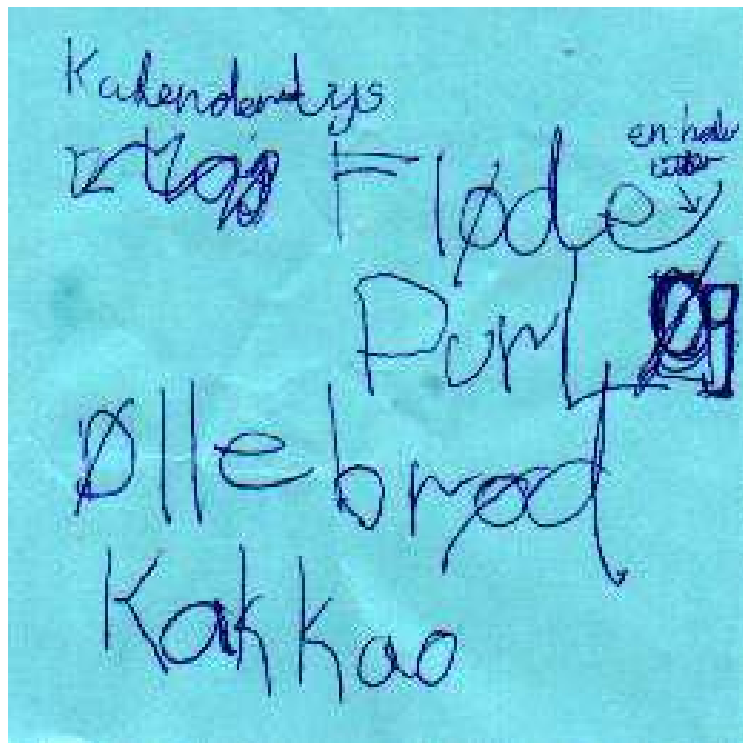 Kalenderlys
en halv
Fløde
Purløg
Øllebrød
Kakkao